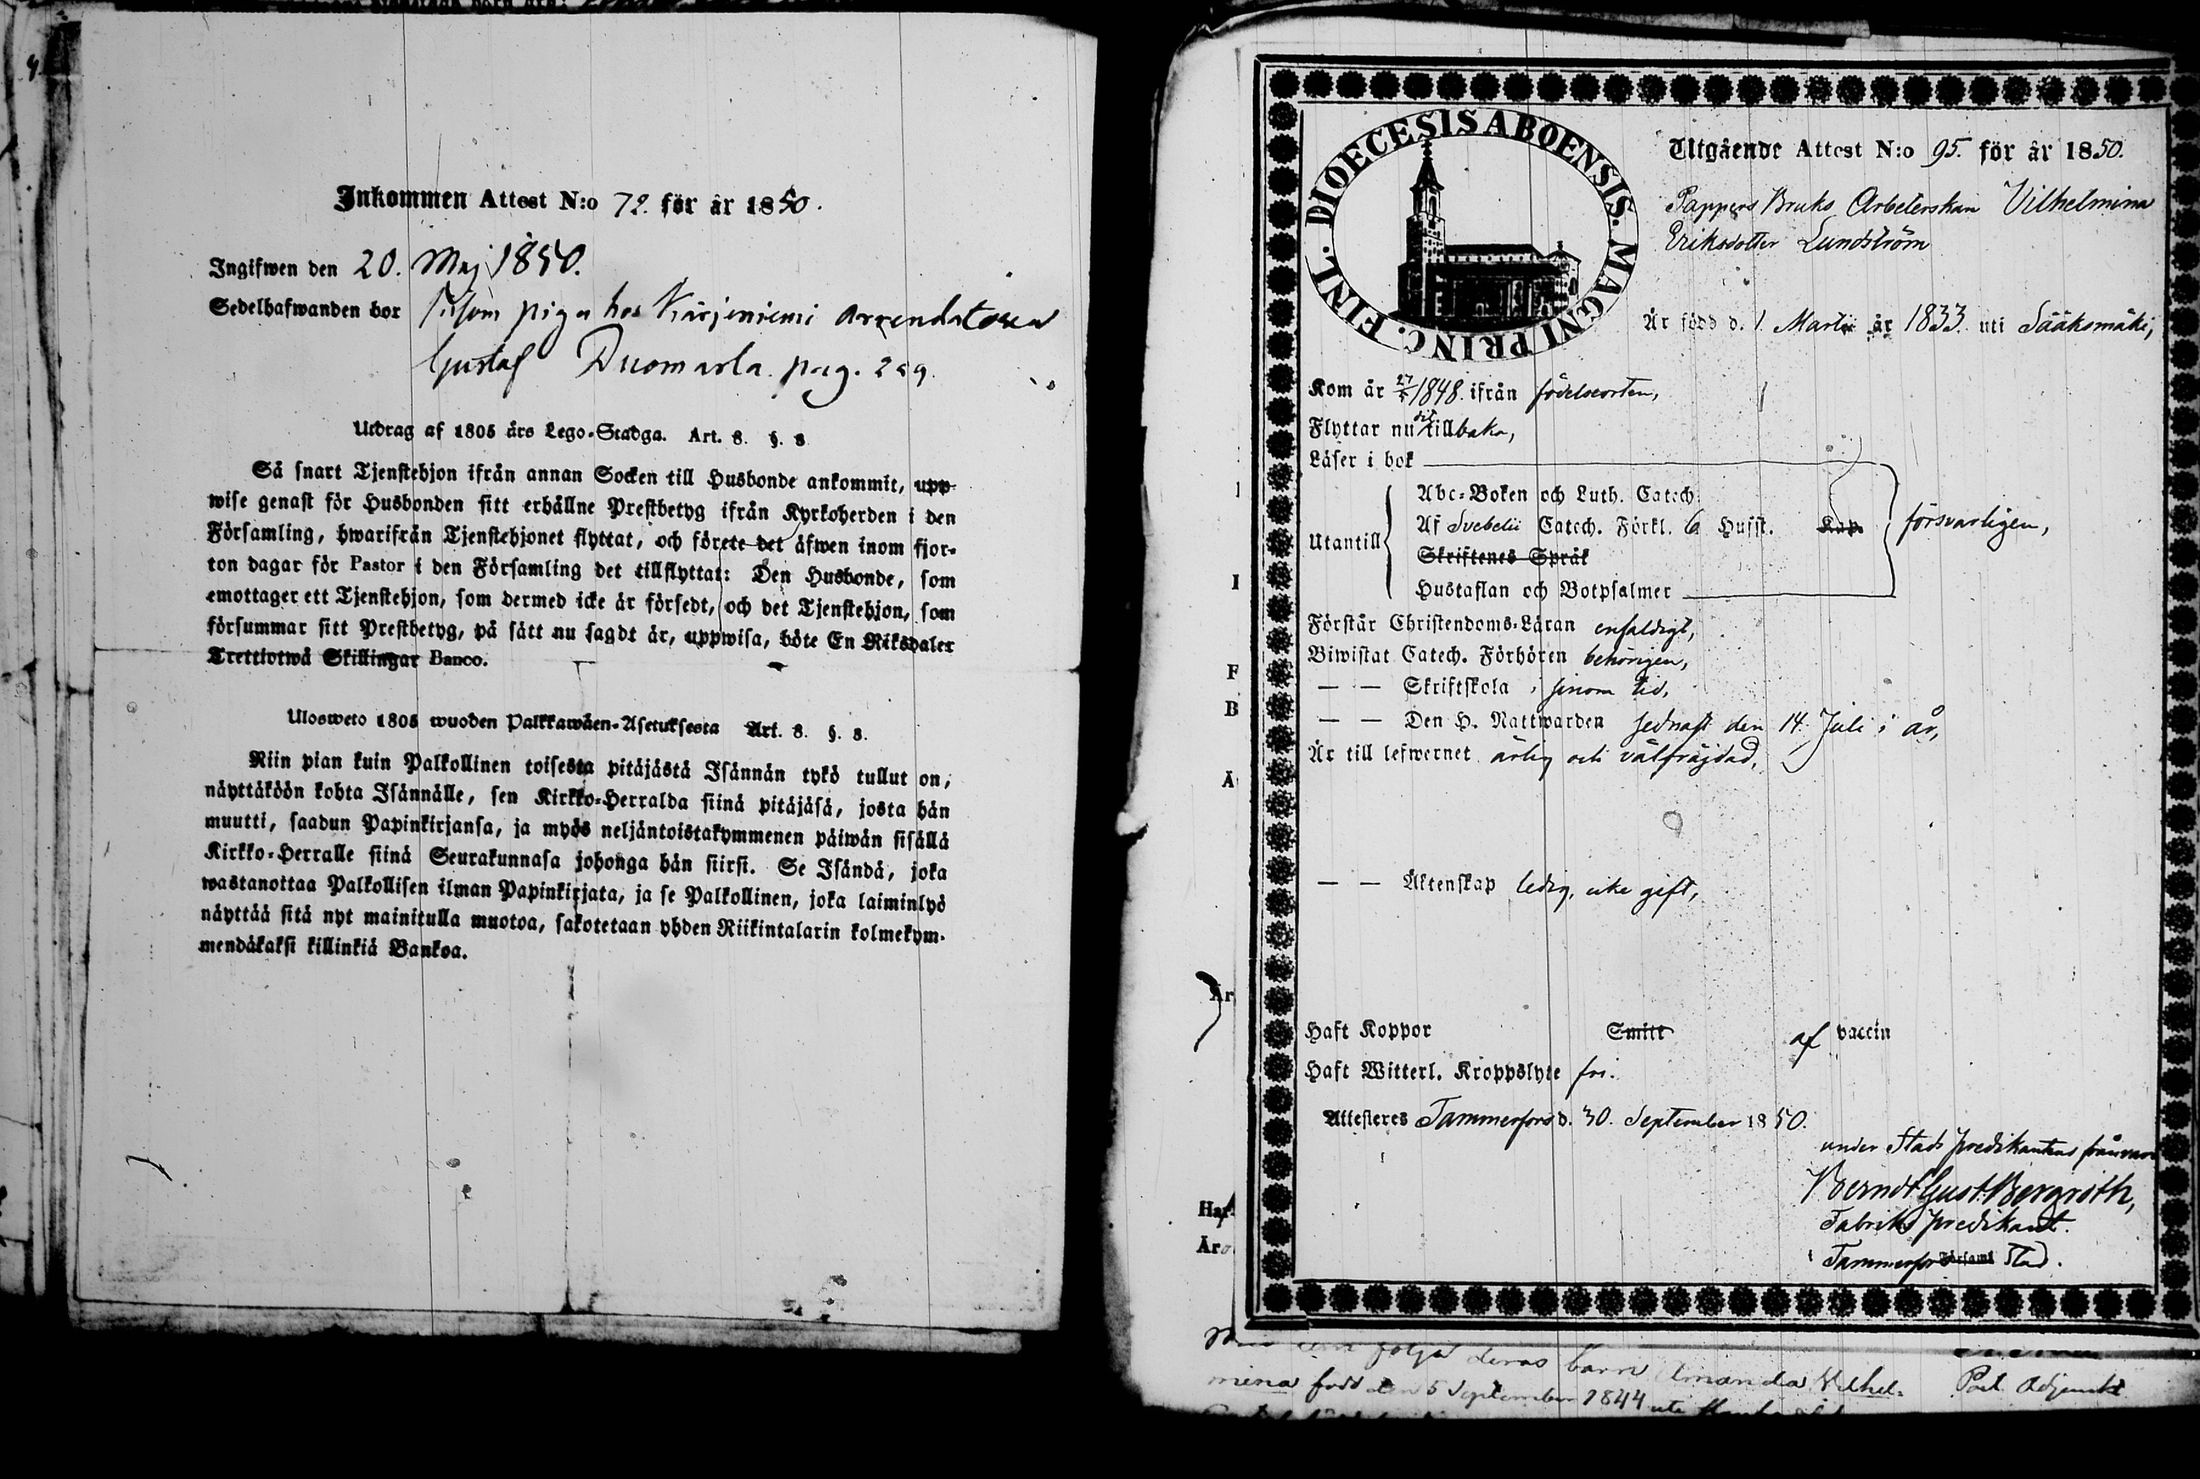 Inkommen Attest N:o 72. för år 1850.
Ingifwen den 20. Maj 1850.
Sedelhafwanden bor såsom piga hos Kärjeniemi arrendatoren
Gustaf Duomarla. pag. 229.
Utdrag af 1805 års Lego-Stadga. Art. 8. §. 8
Så snart Tjenstehjon ifrån annan Socken till Husbonde ankommit, upp-
wise genast för Husbonden sitt erhållne Prestbetyg ifrån Kyrkoherden i den
Församling, hwarifrån Tjenstehjonet flyttat, och förete det äfwen inom fjor-
ton dagar för Pastor i den Församling det tillflyttat: Den Husbonde, som
emottager ett Tjenstehjon, som dermed icke är försedt, och det Tjenstehjon, som
försummar sitt Prestbetyg, på sätt nu sagdt är, uppwisa, böte En Riksdaler
Trettiotwå Skillingar Banco.
Ulosweto 1805 wuoden Palkkawäen-Asetuksesta Art. 8. §. 8.
Niin pian kuin Palkollinen toisesta pitäjästä Isännän tykö tullut on,
näyttäköön kohta Isännälle, sen Kirkko-Herralda siinä pitäjäsä, josta hän
muutti, saadun Papinkirjansa, ja myös neljäntoistakymmenen päiwän sisällä
Kirkko-Herralle siinä Seurakunnasa johonga hän siirsi. Se Isändä, joka
wastanottaa Palkollisen ilman Papinkirjata, ja se Palkollinen, joka laiminlyö
näyttää sitä nyt mainitulla muotoa, sakotetaan yhden Riikintalarin kolmekym-
mendäkaksi killinkiä Bankoa.
DIOECESIS ABOENSIS. MAGNI PRINC. FINL.
Utgående Attest N:o 95. för år 1850.
Pappers Bruks Arbeterskan Vilhelmina
Eriksdotter Lundström
Är född d. 1 Martii år 1833 uti Sääksmäki,
Kom år 1848. ifrån födelseorten,
Flyttar nu dit tillbaka,
Läser i bok
Abc-Boken och Luth. Catech.
Utantill Af Svebelii Catech. Förkl. 6 Hufst. Kap. försvarligen,
Skriftenes Språk
Hustaflan och Botpsalmer
Förstår Christendoms-Läran enfaldigt,
Biwistat Catech. Förhören behörigen,
— — Skriftskola i sinom tid,
— — Den H. Nattwarden sednast den 14. Juli i år,
Är till lefwernet ärlig och välfräjdad,
— — Äktenskap ledig, icke gift,
Haft Koppor Smitt af vaccin
Haft Witterl. Kroppslyte fri.
Attesteres Tammerfors d. 30. September 1850.
under Stads predikantens frånvaro
Berndt Gust. Bergroth,
Fabriks predikant.
i Tammerfors Församl Stad.
följa deras barn Amanda Vilhel-
mina född den 5 September 1844 Past. Adjunct